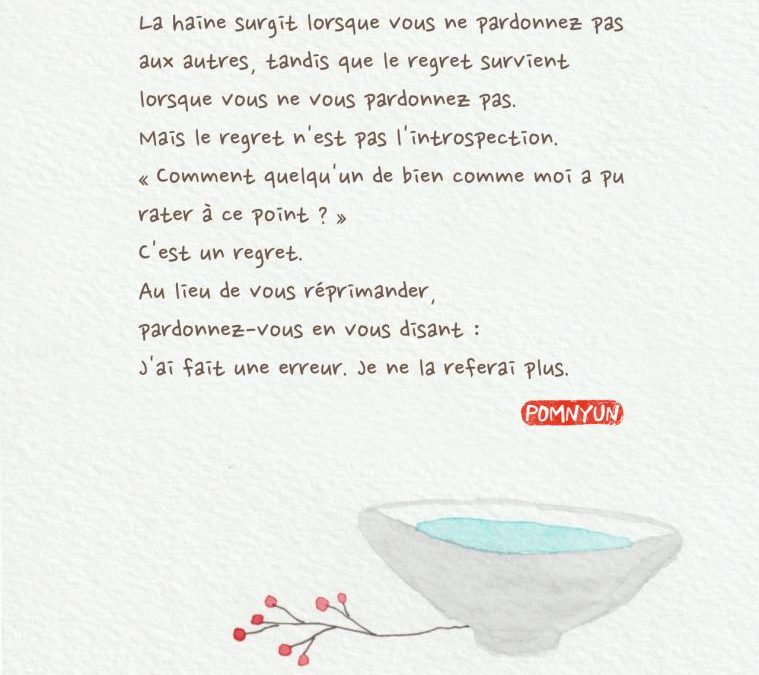 La haine surgit lorsque vous ne pardonnez pas
aux autres, tandis que le regret survient
lorsque vous ne vous pardonnez pas.
Mais le regret n'est pas l'introspection.
« Comment quelqu'un de bien comme moi a pu
rater à ce point ? »
C'est un regret.
Au lieu de vous réprimander,
pardonnez-vous en vous disant :
J'ai fait une erreur. Je ne la referai plus.
POMNYUN